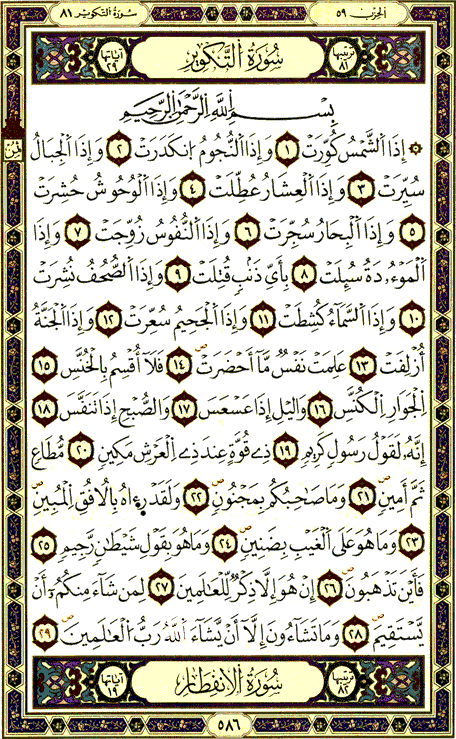 الحزب ٥٩
سورة التكوير ٨١
ترتيبها ٨١ سُورَةُ التَّكْوِيرِ آياتها ٢٩
بِسْمِ اللَّهِ الرَّحْمَٰنِ الرَّحِيمِ
۞ إِذَا الشَّمْسُ كُوِّرَتْ ١ وَإِذَا النُّجُومُ انكَدَرَتْ ٢ وَإِذَا الْجِبَالُ
ثمن
سُيِّرَتْ ٣ وَإِذَا الْعِشَارُ عُطِّلَتْ ٤ وَإِذَا الْوُحُوشُ حُشِرَتْ
٥ وَإِذَا الْبِحَارُ سُجِّرَتْ ٦ وَإِذَا النُّفُوسُ زُوِّجَتْ ٧ وَإِذَا
الْمَوْءُۥدَةُ سُئِلَتْ ٨ بِأَيِّ ذَنْبٍ قُتِلَتْ ٩ وَإِذَا الصُّحُفُ نُشِرَتْ
١٠ وَإِذَا السَّمَاءُ كُشِطَتْ ١١ وَإِذَا الْجَحِيمُ سُعِّرَتْ ١٢ وَإِذَا الْجَنَّةُ
أُزْلِفَتْ ١٣ عَلِمَتْ نَفْسٌ مَّا أَحْضَرَتْ ١٤ فَلَا أُقْسِمُ بِالْخُنَّسِ ١٥
الْجَوَارِ الْكُنَّسِ ١٦ وَالَّيْلِ إِذَا عَسْعَسَ ١٧ وَالصُّبْحِ إِذَا تَنَفَّسَ ١٨
إِنَّهُۥ لَقَوْلُ رَسُولٍ كَرِيمٍ ١٩ ذِي قُوَّةٍ عِندَ ذِي الْعَرْشِ مَكِينٍ ٢٠ مُّطَاعٍ
ثَمَّ أَمِينٍ ٢١ وَمَا صَاحِبُكُم بِمَجْنُونٍ ٢٢ وَلَقَدْ رَءَاهُ بِالْأُفُقِ الْمُبِينِ
٢٣ وَمَا هُوَ عَلَى الْغَيْبِ بِضَنِينٍ ٢٤ وَمَا هُوَ بِقَوْلِ شَيْطَانٍ رَّجِيمٍ ٢٥
فَأَيْنَ تَذْهَبُونَ ٢٦ إِنْ هُوَ إِلَّا ذِكْرٌ لِّلْعَالَمِينَ ٢٧ لِمَن شَاءَ مِنكُمُۥ أَنْ
يَسْتَقِيمَ ٢٨ وَمَا تَشَاءُونَ إِلَّا أَنْ يَّشَاءَ اللَّهُ رَبُّ الْعَالَمِينَ ٢٩
ترتيبها ٨٢ سُورَةُ الْانفِطَارِ آياتها ١٩
٥٨٦